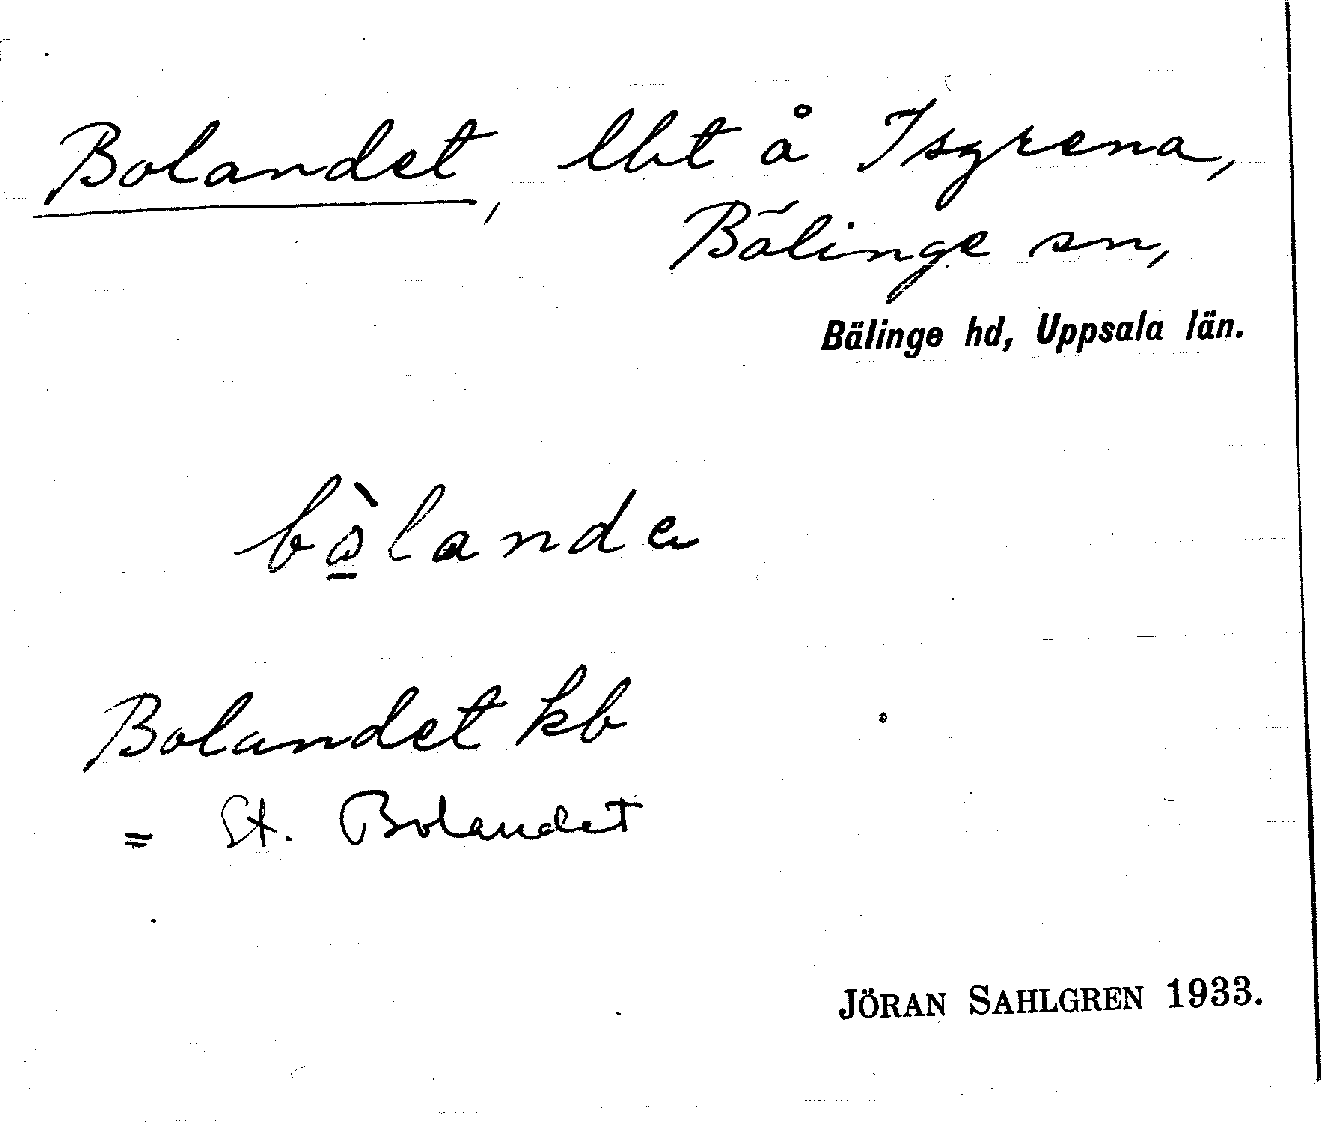 Bolandet, lbt å Isgrena,
Bälinge sn,
Bälinge hd, Uppsala län.
bò̲landɐ
Bolandet kb
= St. Bolandet
JÖRAN SAHLGREN 1933.